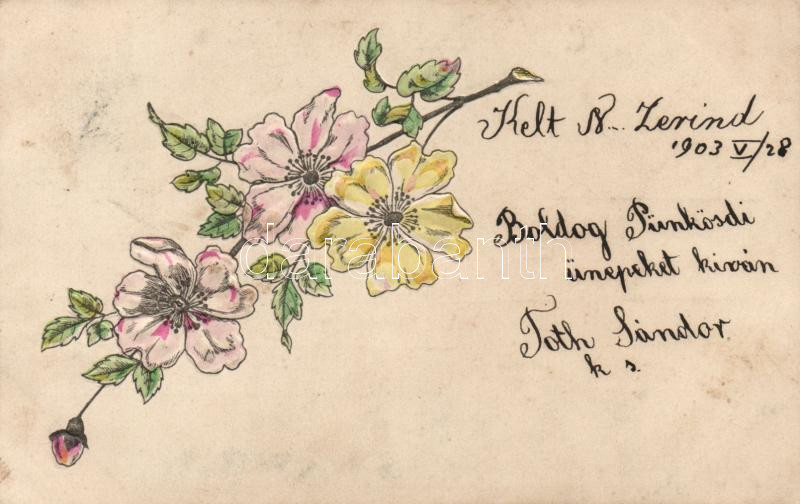 Kelt N.. Zerind
1903 V/28
Boldog Pünkösdi
ünnepeket kiván
Toth Sándor
k s.
darabanth